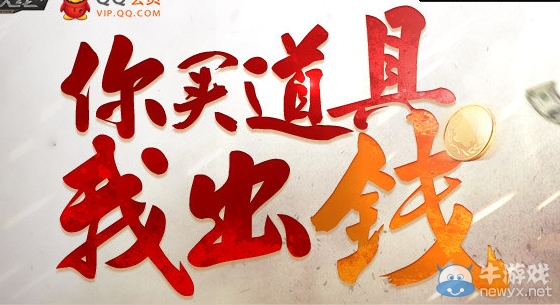 QQ会员
VIP.QQ.COM
你买道具
我出錢
牛游戏
newyx.net